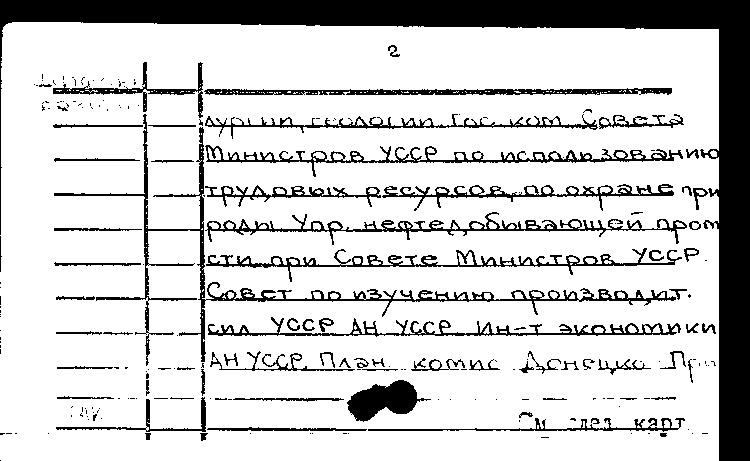 2
лургии, геологии. Гос. ком. Совета
Министров УССР по использованию
трудовых ресурсов, по охране при
роды. Упр. нефтедобывающей пром
сти при Совете Министров УССР.
Совет по изучению производит.
сил УССР АН УССР. Ин-т экономики
АН УССР. План. комис Донецко При
См след. карт